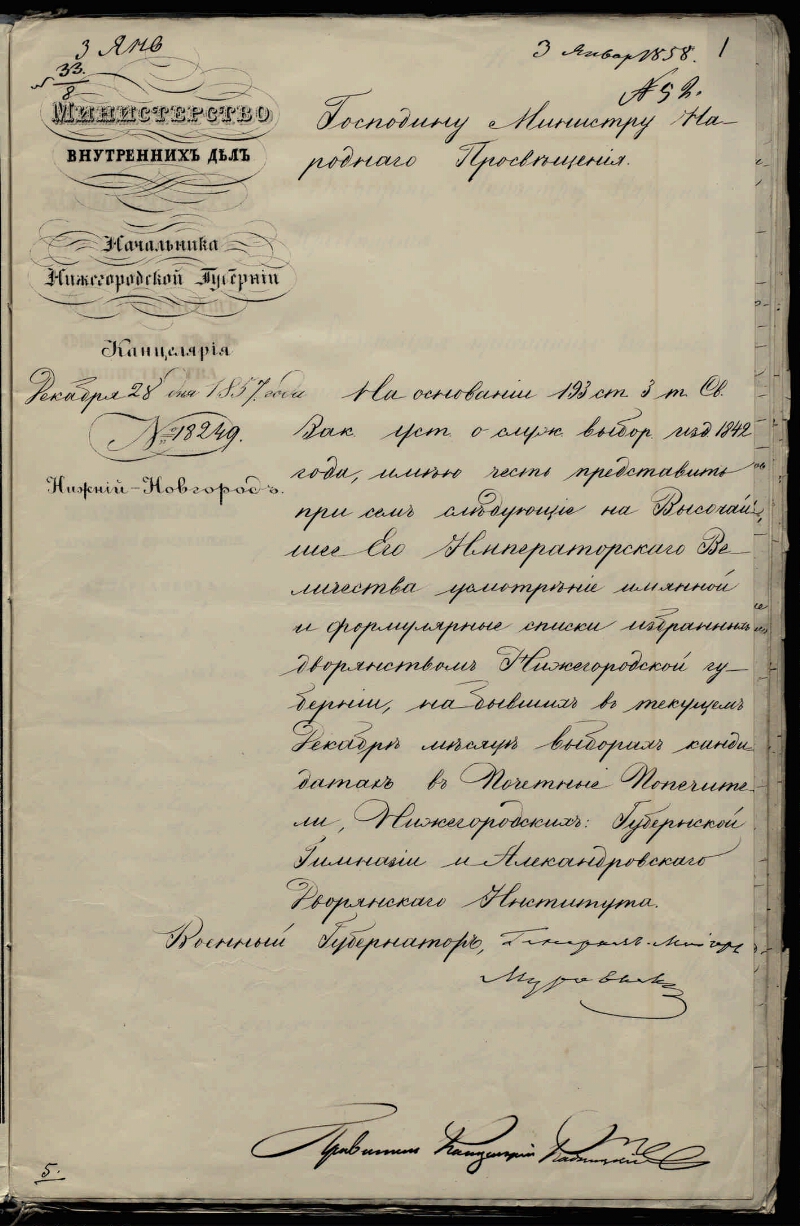 3 Янв
№ 33/8
3 Январ 1858.
1
№ 52.
Министерство
внутреннихъ дѣлъ
Начальника
Нижегородской Губерніи
Канцелярія
Декабря 28 дня 1857 года
№ 18249.
Нижній-Новгородъ.
Господину Министру На-
роднаго Просвѣщенія.
На основаніи 193 ст. 3 т. Св.
Зак. уст. о служ. выбор. изд. 1842
года, имѣю честь представить
при семъ слѣдующіе на Высочай-
шее Его Императорскаго Ве-
личества усмотрѣніе имянной
и формулярные списки избранныхъ
дворянствомъ Нижегородской гу-
берніи, на бывшихъ въ текущемъ
Декабрѣ мѣсяцѣ выборахъ канди-
датахъ въ Почетные Попечите-
ли, Нижегородскихъ: Губернской
Гимназіи и Александровскаго
Дворянскаго Института.
Военный Губернаторъ, Генералъ-Маіоръ
Муравьевъ
Правитель Канцеляріи
5.